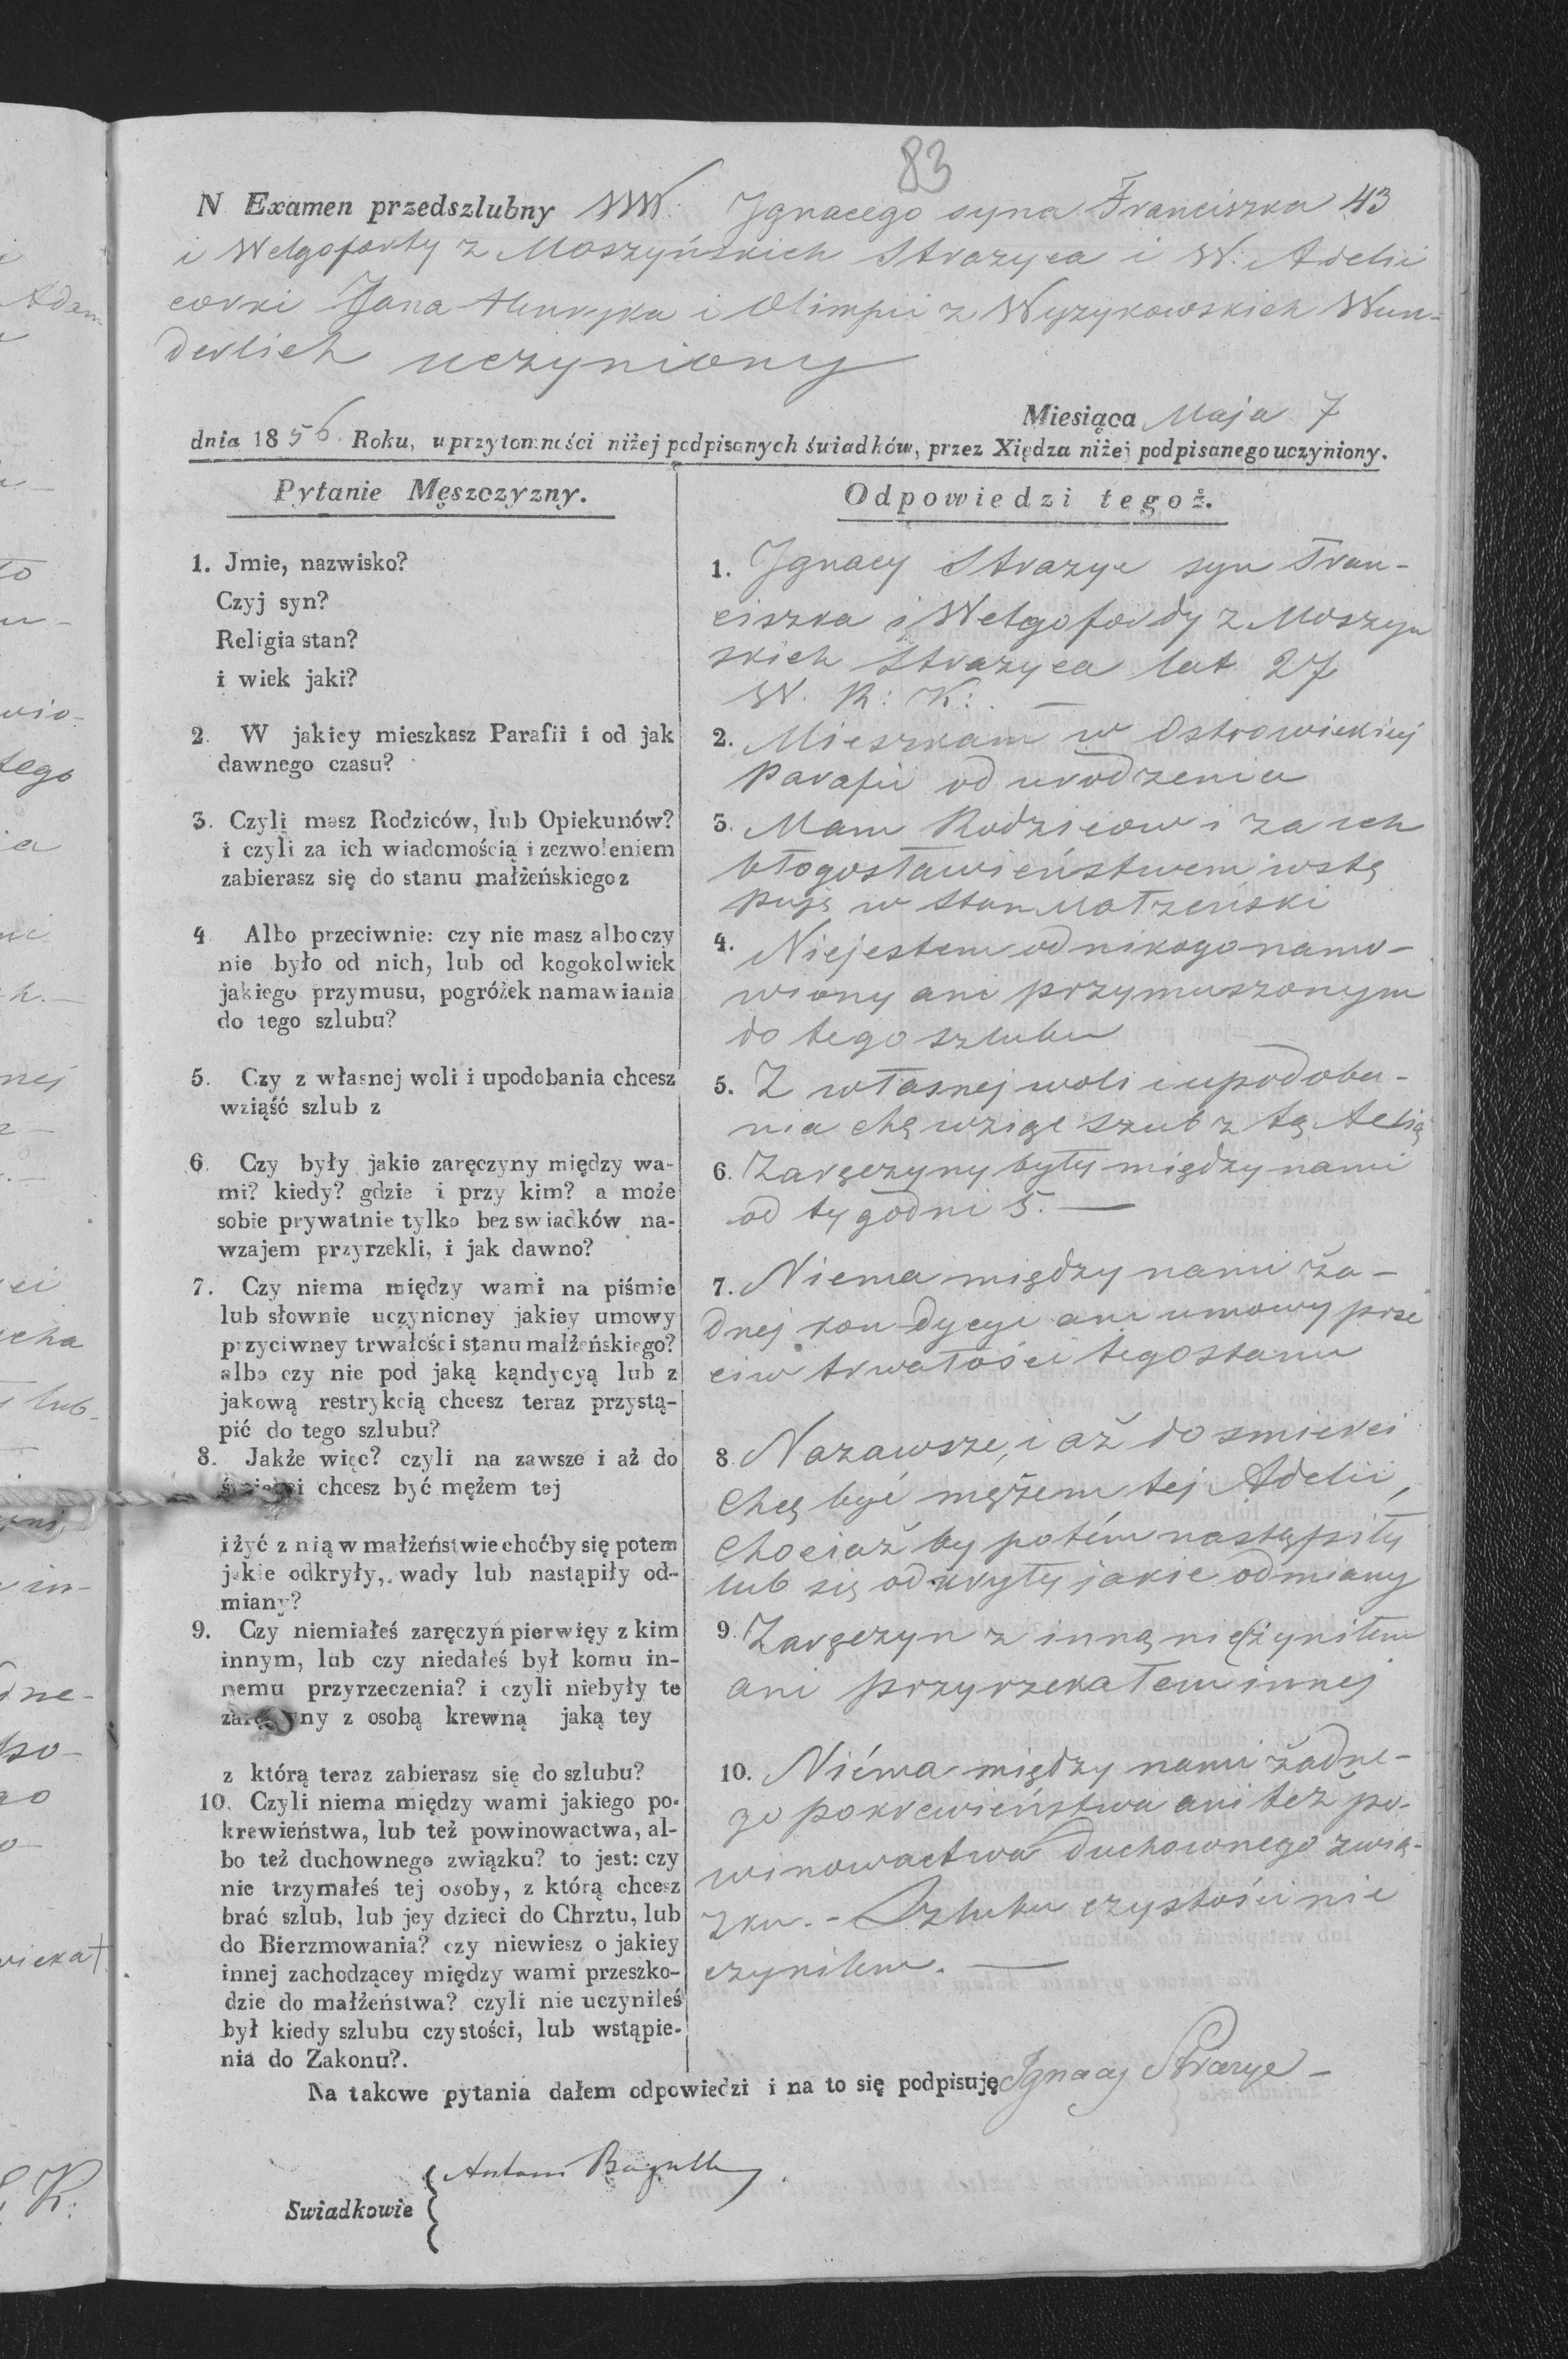 83
N Examen przedszlubny WW. Jgnacego syna Franciszka 43
i Welgoforty z Moszyńskich Strazyca i W. Adelii
corki Jana Henryka i Olimpii z Wyzykowskich Wun-
derlich uczyniony
Miesiąca Maja 7
dnia 1856 Roku, w przytomności niżej podpisanych świadków, przez Xiędza niżej podpisanego uczyniony.
Pytanie Męszczyzny.
1. Jmie, nazwisko?
Czyj syn?
Religia stan?
i wiek jaki?
2. W jakiey mieszkasz Parafii i od jak
dawnego czasu?
3. Czyli masz Rodziców, lub Opiekunów?
i czyli za ich wiadomością i zezwoleniem
zabierasz się do stanu małżeńskiego z
4 Albo przeciwnie: czy nie masz albo czy
nie było od nich, lub od kogokolwiek
jakiego przymusu, pogróżek namawiania
do tego szlubu?
5. Czy z własnej woli i upodobania chcesz
wziąść szlub z
6. Czy były jakie zaręczyny między wa-
mi? kiedy? gdzie i przy kim? a może
sobie prywatnie tylko bez swiadków na-
wzajem przyrzekli, i jak dawno?
7. Czy niema między wami na piśmie
lub słownie uczynioney jakiey umowy
przyciwney trwałości stanu małżeńskiego?
albo czy nie pod jaką kąndycyą lub z
jakową restrykcią chcesz teraz przystą-
pić do tego szlubu?
8. Jakże więc? czyli na zawsze i aż do
śmierci chcesz być mężem tej
i żyć z nią w małżeństwie choćby się potem
jakie odkryły, wady lub nastąpiły od-
miany?
9. Czy niemiałeś zaręczyń pierwięy z kim
innym, lub czy niedałeś był komu in-
nemu przyrzeczenia? i czyli niebyły te
zaręczyny z osobą krewną jaką tey
z którą teraz zabierasz się do szlubu?
10. Czyli niema między wami jakiego po-
krewieństwa, lub też powinowactwa, al-
bo też duchownego związku? to jest: czy
nie trzymałeś tej osoby, z którą chcesz
brać szlub, lub jey dzieci do Chrztu, lub
do Bierzmowania? czy niewiesz o jakiey
innej zachodzącey między wami przeszko-
dzie do małżeństwa? czyli nie uczyniłeś
był kiedy szlubu czystości, lub wstąpie-
nia do Zakonu?.
Odpowiedzi tegoż.
1. Jgnacy Strazyc syn Fran-
ciszka i Welgofordy z Moszyn
skich Strazyca lat 27
W. R: K: —
2. Mieszkam w Ostrowieckiej
Parafii od urodzenia
3. Mam Rodzicow i za ich
błogosławieństwem wstę
puję w stan Małzeński
4. Niejestem od nikogo namo-
wiony ani przymuszonym
do tego szlubu
5. Z własnej woli i upodoba-
nia chę wziąć szub z tą
6. Zaręczyny były między nami
od tygodni 5. —
7. Niema między nami ża-
dnej kondycyi ani umowy prze
ciw trwałości tego stanu
8 Nazawsze, i aż do smierci
chcę być mężem tej Adelii,
chociaż by potém nastąpiły
lub się odkryły jakie odmiany
9. Zaręczyn z inną nie czyniłem
ani przyrzekałem innej
10. Niéma między nami żadne-
go pokrewieństwa ani też po-
winowactwa duchownego zwią-
zku. - Szlubu czystości nie
czyniłem. —
Na takowe pytania dałem odpowiedzi i na to się podpisuję Jgnacy Strazyc -
Swiadkowie { Antoni